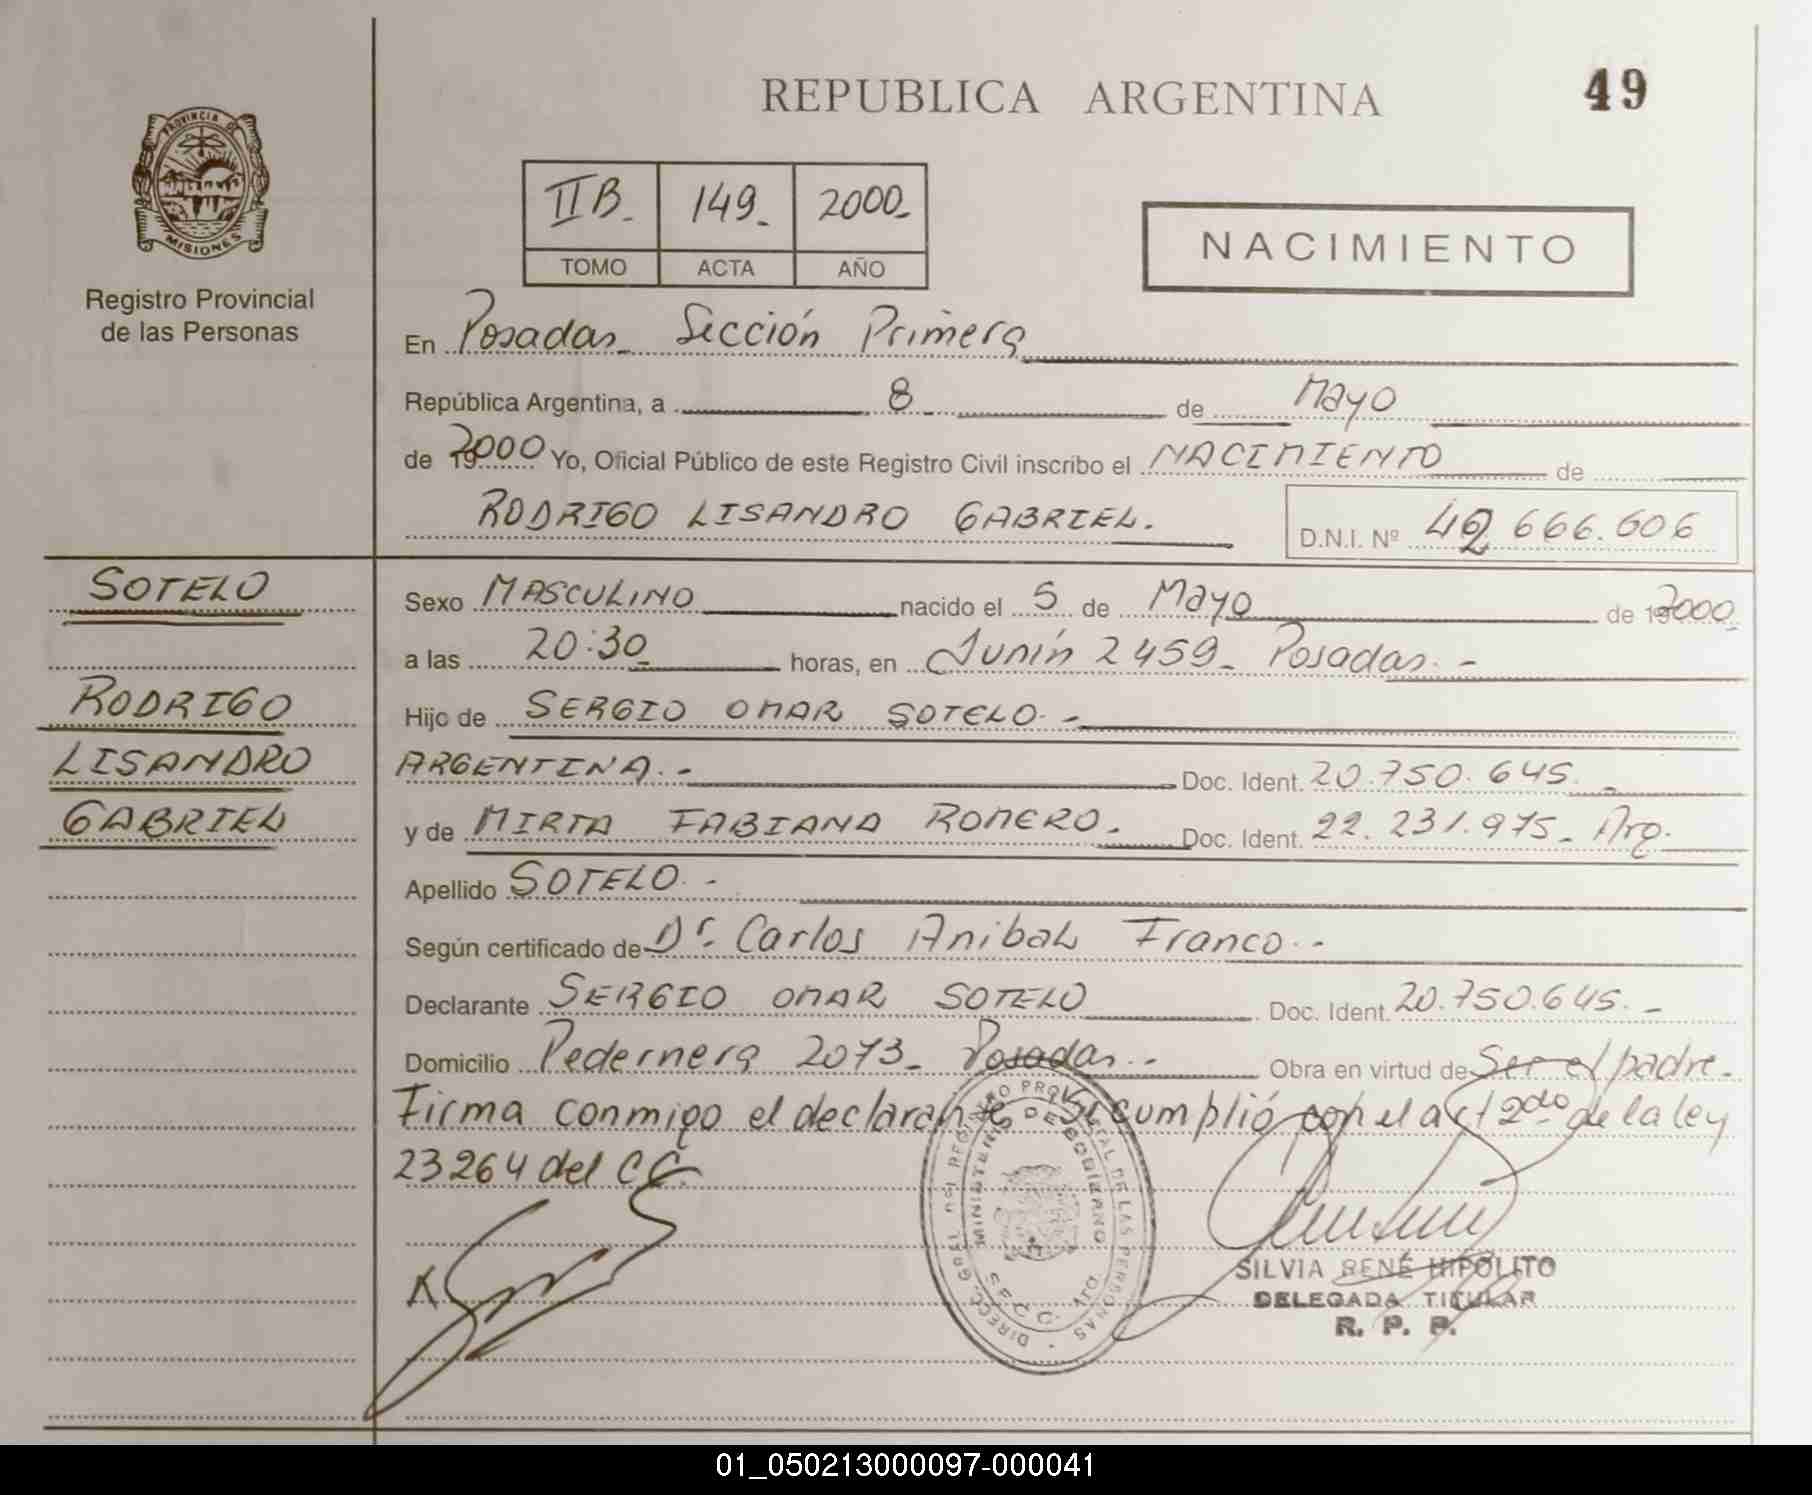 REPUBLICA ARGENTINA
49
PROVINCIA DE
MISIONES
Registro Provincial
de las Personas
IIB. 149. 2000.
TOMO ACTA AÑO
NACIMIENTO
En Posadas. Sección Primera
República Argentina, a 8 de Mayo
de 2000 Yo, Oficial Público de este Registro Civil inscribo el NACIMIENTO de
RODRIGO LISANDRO GABRIEL. D.N.I. Nº 42 666.606
SOTELO
RODRIGO
LISANDRO
GABRIEL
Sexo MASCULINO nacido el 5 de Mayo de 2000.
a las 20:30 horas, en Junín 2459. Posadas. -
Hijo de SERGIO OMAR SOTELO. -
ARGENTINA. - Doc. Ident. 20.750.645. -
y de MIRTA FABIANA ROMERO. Doc. Ident. 22.231.975. Arg.
Apellido SOTELO. -
Según certificado de Dr. Carlos Anibal Franco. -
Declarante SERGIO OMAR SOTELO Doc. Ident. 20.750.645. -
Domicilio Pedernera 2073. Posadas. - Obra en virtud de Ser el padre.
Firma conmigo el declarante Se cumplió con el art 2do de la ley
23264 del CC.
DIREC. GRAL. DEL REGISTRO PROVINCIAL DE LAS PERSONAS
MINISTERIO DE GOBIERNO
SECC. 1ra.
SILVIA RENÉ HIPÓLITO
DELEGADA TITULAR
R. P. P.
01_050213000097-000041